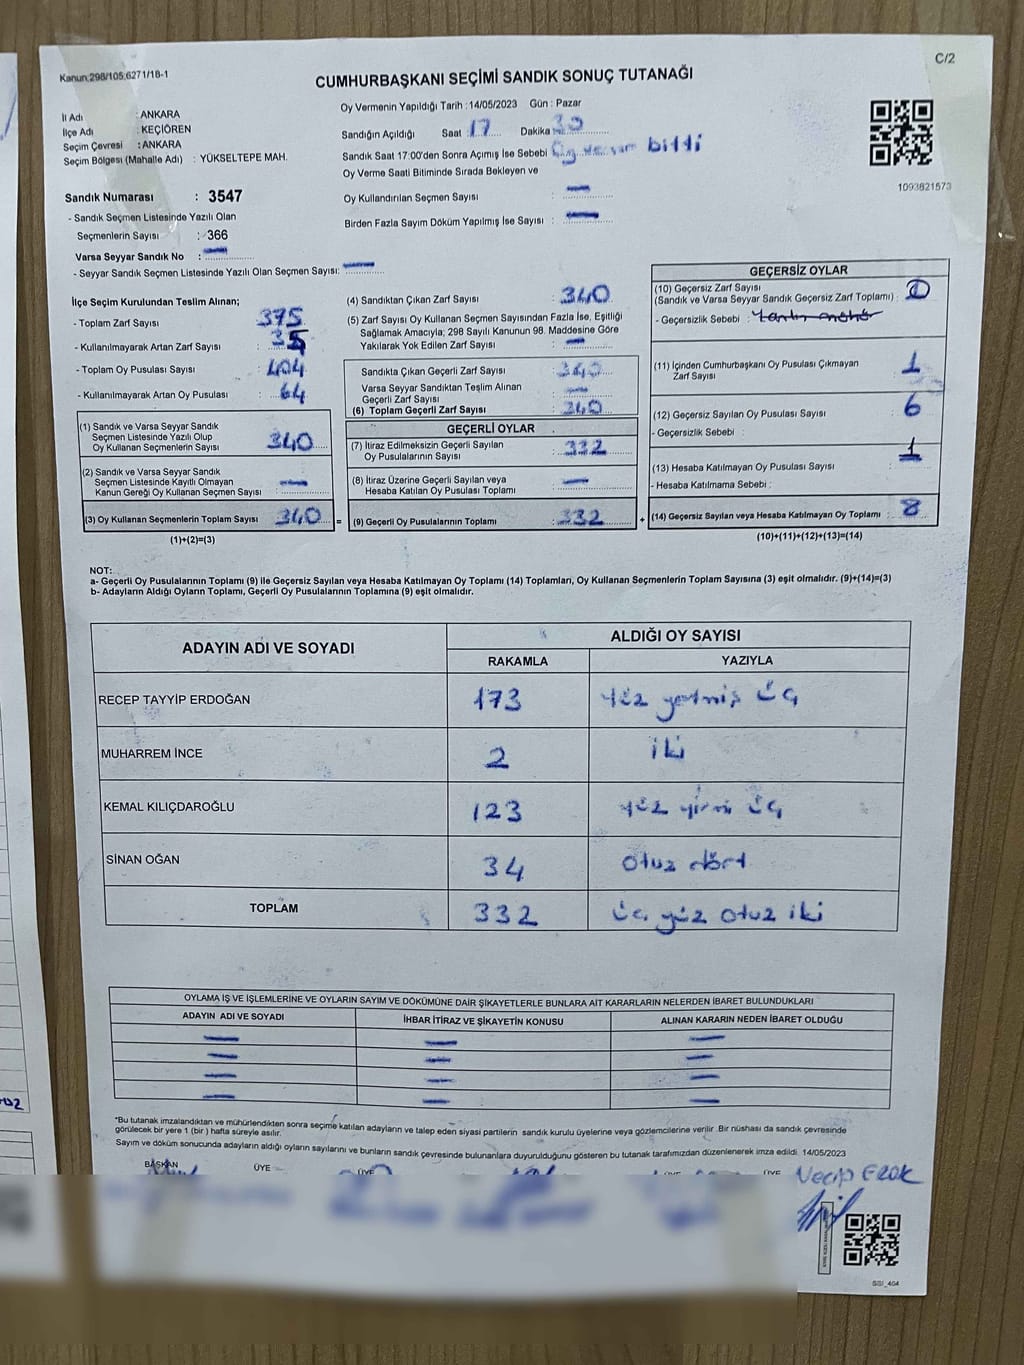 Kanun:298/105;6271/18-1
C/2
CUMHURBAŞKANI SEÇİMİ SANDIK SONUÇ TUTANAĞI
İl Adı : ANKARA
İlçe Adı : KEÇİÖREN
Seçim Çevresi : ANKARA
Seçim Bölgesi (Mahalle Adı) : YÜKSELTEPE MAH.
Sandık Numarası : 3547
- Sandık Seçmen Listesinde Yazılı Olan
Seçmenlerin Sayısı : 366
Varsa Seyyar Sandık No :
- Seyyar Sandık Seçmen Listesinde Yazılı Olan Seçmen Sayısı:
Oy Vermenin Yapıldığı Tarih : 14/05/2023 Gün : Pazar
Sandığın Açıldığı Saat : 17 Dakika : 30
Sandık Saat 17:00'den Sonra Açımış İse Sebebi bitti
Oy Verme Saati Bitiminde Sırada Bekleyen ve
Oy Kullandırılan Seçmen Sayısı :
Birden Fazla Sayım Döküm Yapılmış İse Sayısı :
1093821573
İlçe Seçim Kurulundan Teslim Alınan;
- Toplam Zarf Sayısı : 375
- Kullanılmayarak Artan Zarf Sayısı : 35
- Toplam Oy Pusulası Sayısı : 404
- Kullanılmayarak Artan Oy Pusulası : 64
(1) Sandık ve Varsa Seyyar Sandık
Seçmen Listesinde Yazılı Olup
Oy Kullanan Seçmenlerin Sayısı : 340
(2) Sandık ve Varsa Seyyar Sandık
Seçmen Listesinde Kayıtlı Olmayan
Kanun Gereği Oy Kullanan Seçmen Sayısı :
(3) Oy Kullanan Seçmenlerin Toplam Sayısı : 340 =
(1)+(2)=(3)
(4) Sandıktan Çıkan Zarf Sayısı : 340
(5) Zarf Sayısı Oy Kullanan Seçmen Sayısından Fazla İse, Eşitliği
Sağlamak Amacıyla; 298 Sayılı Kanunun 98. Maddesine Göre
Yakılarak Yok Edilen Zarf Sayısı :
Sandıkta Çıkan Geçerli Zarf Sayısı : 340
Varsa Seyyar Sandıktan Teslim Alınan
Geçerli Zarf Sayısı :
(6) Toplam Geçerli Zarf Sayısı : 340
GEÇERLİ OYLAR
(7) İtiraz Edilmeksizin Geçerli Sayılan
Oy Pusulalarının Sayısı : 332
(8) İtiraz Üzerine Geçerli Sayılan veya
Hesaba Katılan Oy Pusulası Toplamı :
(9) Geçerli Oy Pusulalarının Toplamı : 332 +
GEÇERSİZ OYLAR
(10) Geçersiz Zarf Sayısı
(Sandık ve Varsa Seyyar Sandık Geçersiz Zarf Toplamı) :
- Geçersizlik Sebebi :
(11) İçinden Cumhurbaşkanı Oy Pusulası Çıkmayan
Zarf Sayısı : 1
(12) Geçersiz Sayılan Oy Pusulası Sayısı : 6
- Geçersizlik Sebebi :
(13) Hesaba Katılmayan Oy Pusulası Sayısı : 1
- Hesaba Katılmama Sebebi :
(14) Geçersiz Sayılan veya Hesaba Katılmayan Oy Toplamı : 8
(10)+(11)+(12)+(13)=(14)
NOT:
a- Geçerli Oy Pusulalarının Toplamı (9) ile Geçersiz Sayılan veya Hesaba Katılmayan Oy Toplamı (14) Toplamları, Oy Kullanan Seçmenlerin Toplam Sayısına (3) eşit olmalıdır. (9)+(14)=(3)
b- Adayların Aldığı Oyların Toplamı, Geçerli Oy Pusulalarının Toplamına (9) eşit olmalıdır.
ADAYIN ADI VE SOYADI
ALDIĞI OY SAYISI
RAKAMLA YAZIYLA
RECEP TAYYİP ERDOĞAN 173 Yüz yetmiş üç
MUHARREM İNCE 2 iki
KEMAL KILIÇDAROĞLU 123 yüz yirmi üç
SİNAN OĞAN 34 otuz dört
TOPLAM 332 Üç yüz otuz iki
OYLAMA İŞ VE İŞLEMLERİNE VE OYLARIN SAYIM VE DÖKÜMÜNE DAİR ŞİKAYETLERLE BUNLARA AİT KARARLARIN NELERDEN İBARET BULUNDUKLARI
ADAYIN ADI VE SOYADI İHBAR İTİRAZ VE ŞİKAYETİN KONUSU ALINAN KARARIN NEDEN İBARET OLDUĞU
*Bu tutanak imzalandıktan ve mühürlendikten sonra seçime katılan adayların ve talep eden siyasi partilerin sandık kurulu üyelerine veya gözlemcilerine verilir. Bir nüshası da sandık çevresinde
görülecek bir yere 1 (bir) hafta süreyle asılır.
Sayım ve döküm sonucunda adayların aldığı oyların sayılarını ve bunların sandık çevresinde bulunanlara duyurulduğunu gösteren bu tutanak tarafımızdan düzenlenerek imza edildi. 14/05/2023
BAŞKAN ÜYE ÜYE ÜYE
Necip